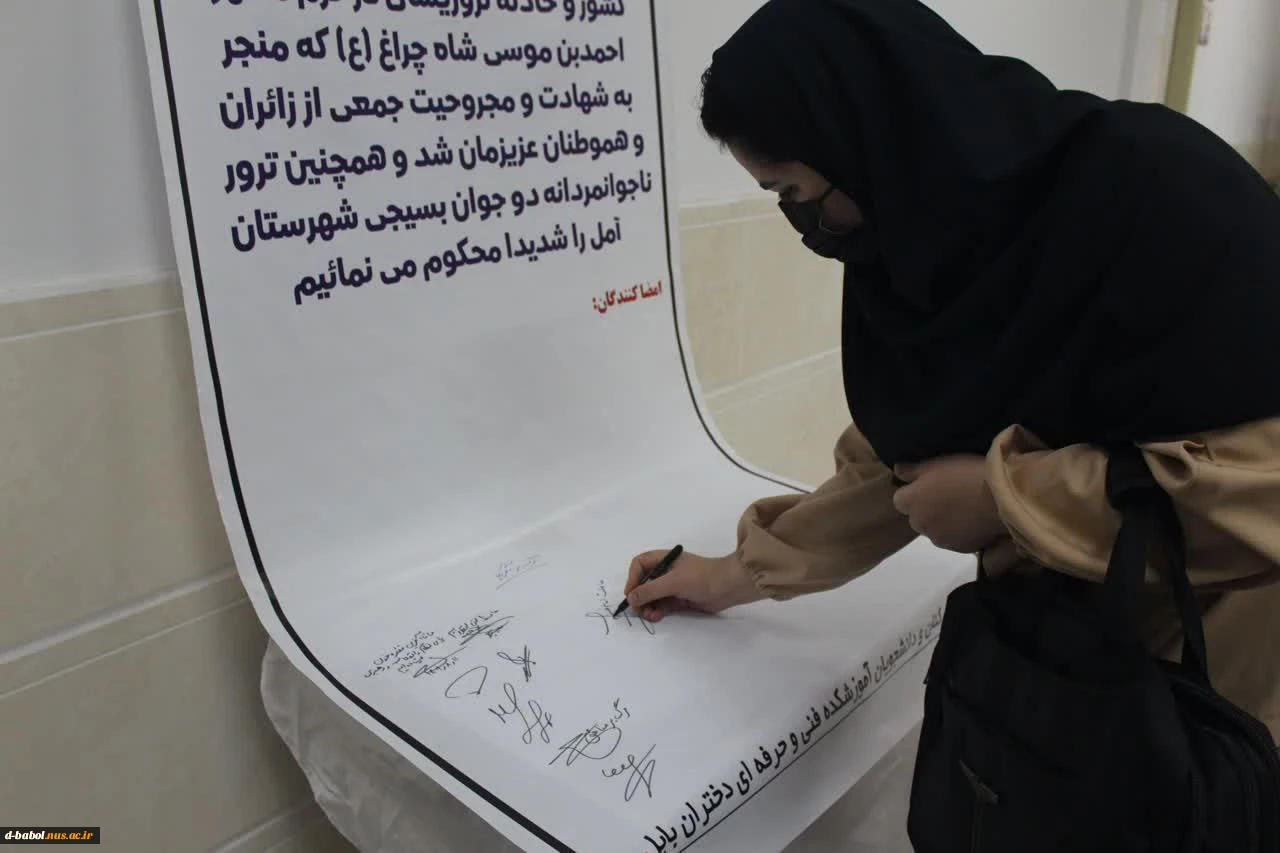 کشور و حادثه تروریستی در حرم
احمدبن موسی شاه چراغ (ع) که منجر
به شهادت و مجروحیت جمعی از زائران
و هموطنان عزیزمان شد و همچنین ترور
ناجوانمردانه دو جوان بسیجی شهرستان
آمل را شدیدا محکوم می نمائیم
امضا کنندگان:
و دانشجویان آموزشکده فنی و حرفه ای دختران بابل
d-babol.nus.ac.ir